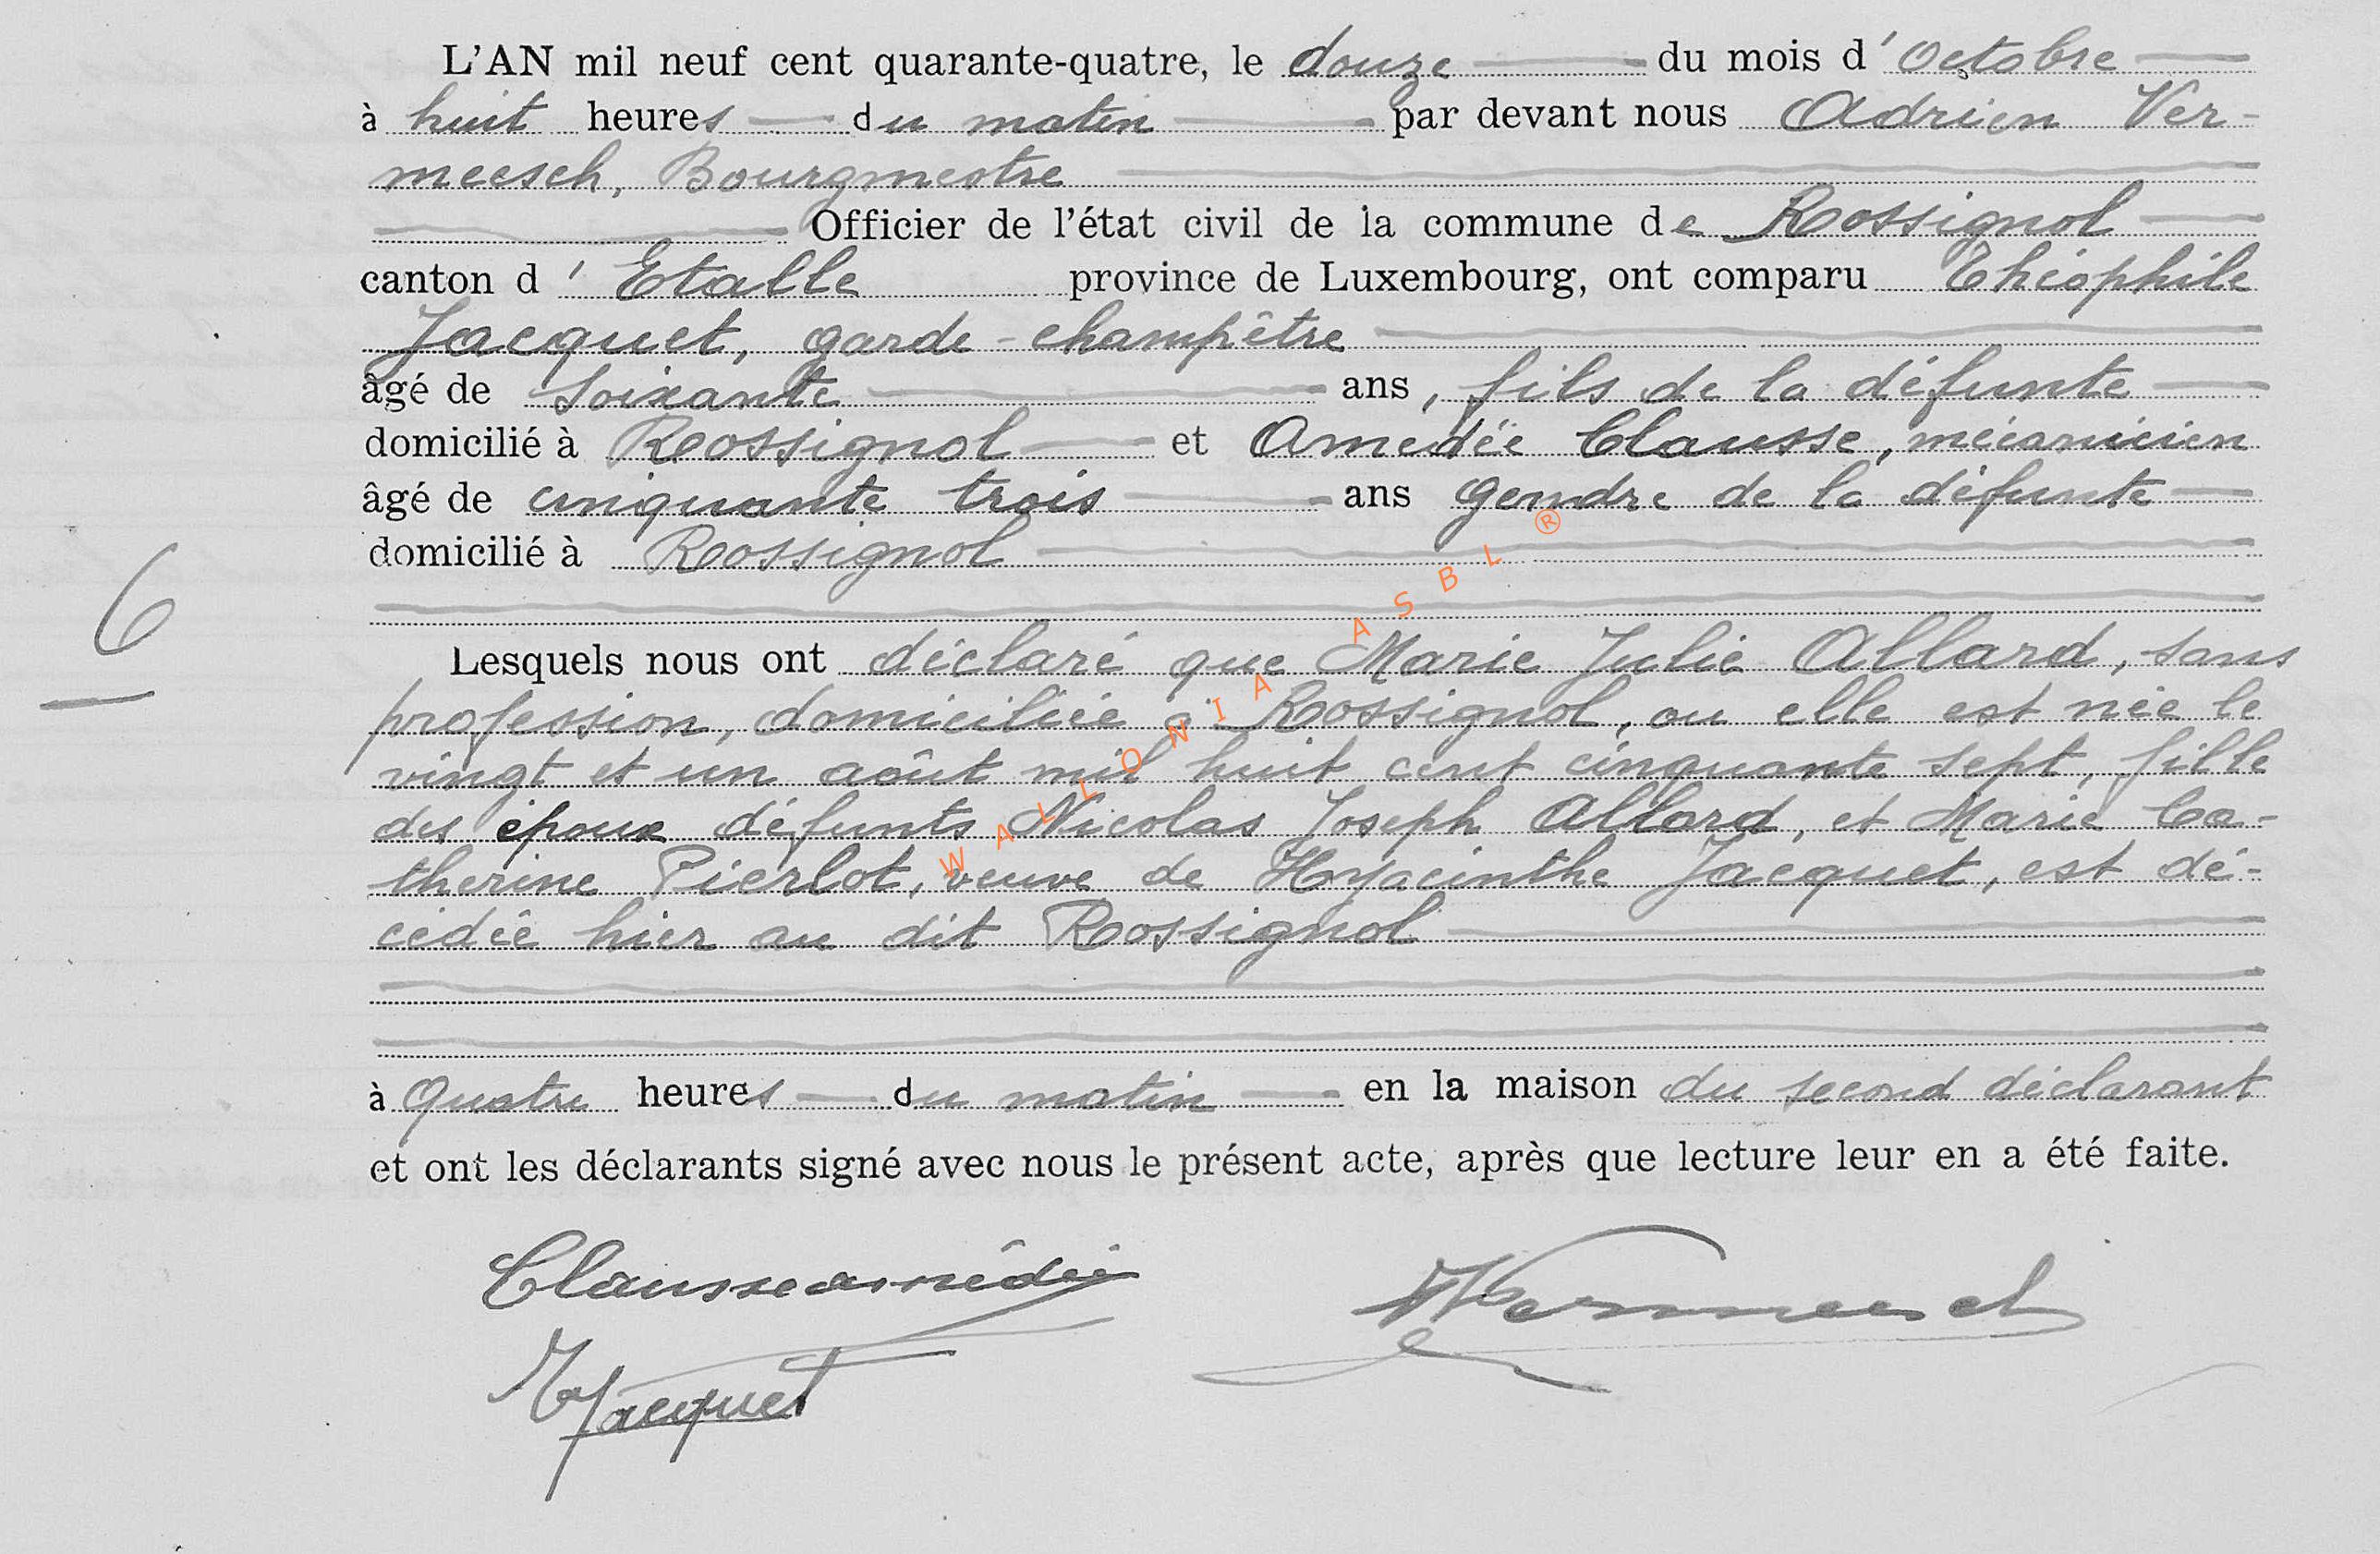 L'AN mil neuf cent quarante-quatre, le douze du mois d'Octobre
à huit heures du matin par devant nous Adrien Ver-
meesch, Bourgmestre
Officier de l'état civil de la commune de Rossignol
canton d'Etalle province de Luxembourg, ont comparu Théophile
Jacquet, garde-champêtre
âgé de soixante ans, fils de la défunte
domicilié à Rossignol et Amédée Clausse, mécanicien
âgé de cinquante trois ans gendre de la défunte
domicilié à Rossignol
6
Lesquels nous ont déclaré que Marie Julie Allard, sans
profession, domiciliée à Rossignol, ou elle est née le
vingt et un août mil huit cent cinquante sept, fille
des époux défunts Nicolas Joseph Allard, et Marie Ca-
therine Pierlot, veuve de Hyacinthe Jacquet, est dé-
cédée hier au dit Rossignol
à quatre heures du matin en la maison du second déclarant
et ont les déclarants signé avec nous le présent acte, après que lecture leur en a été faite.
Clausse amédée
Vermeesch
Jacquet
WALLONIA ASBL ®